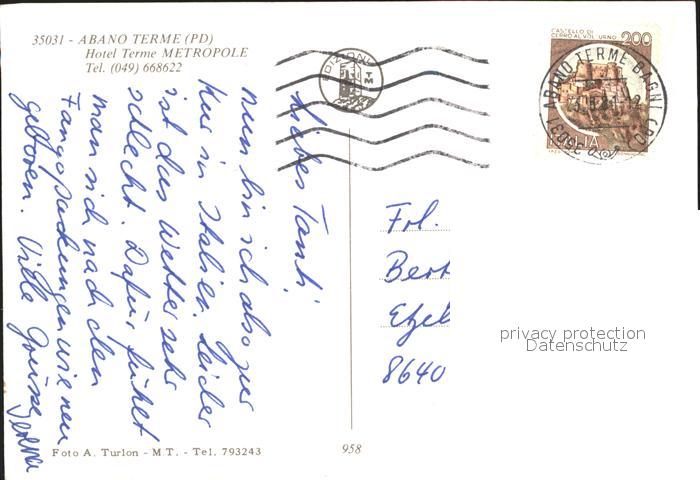 35031 - ABANO TERME (PD)
Hotel Terme METROPOLE
Tel. (049) 668622
Liebes Tanti,
nun bin ich also zur
Kur in Italien. Leider
ist das Wetter sehr
schlecht. Dafür fühlt
man sich nach den
Fangopackungen wie neu
geboren. Viele Grüsse
CASTELLO DI
CERRO AL VOLTURNO 200
ITALIA
ABANO TERME BAGNI (PD)
35031
DIZIONI
TM
Frl.
Bert
Etzel
8640
privacy protection
Datenschutz
Foto A. Turlon - M.T. - Tel. 793243
958